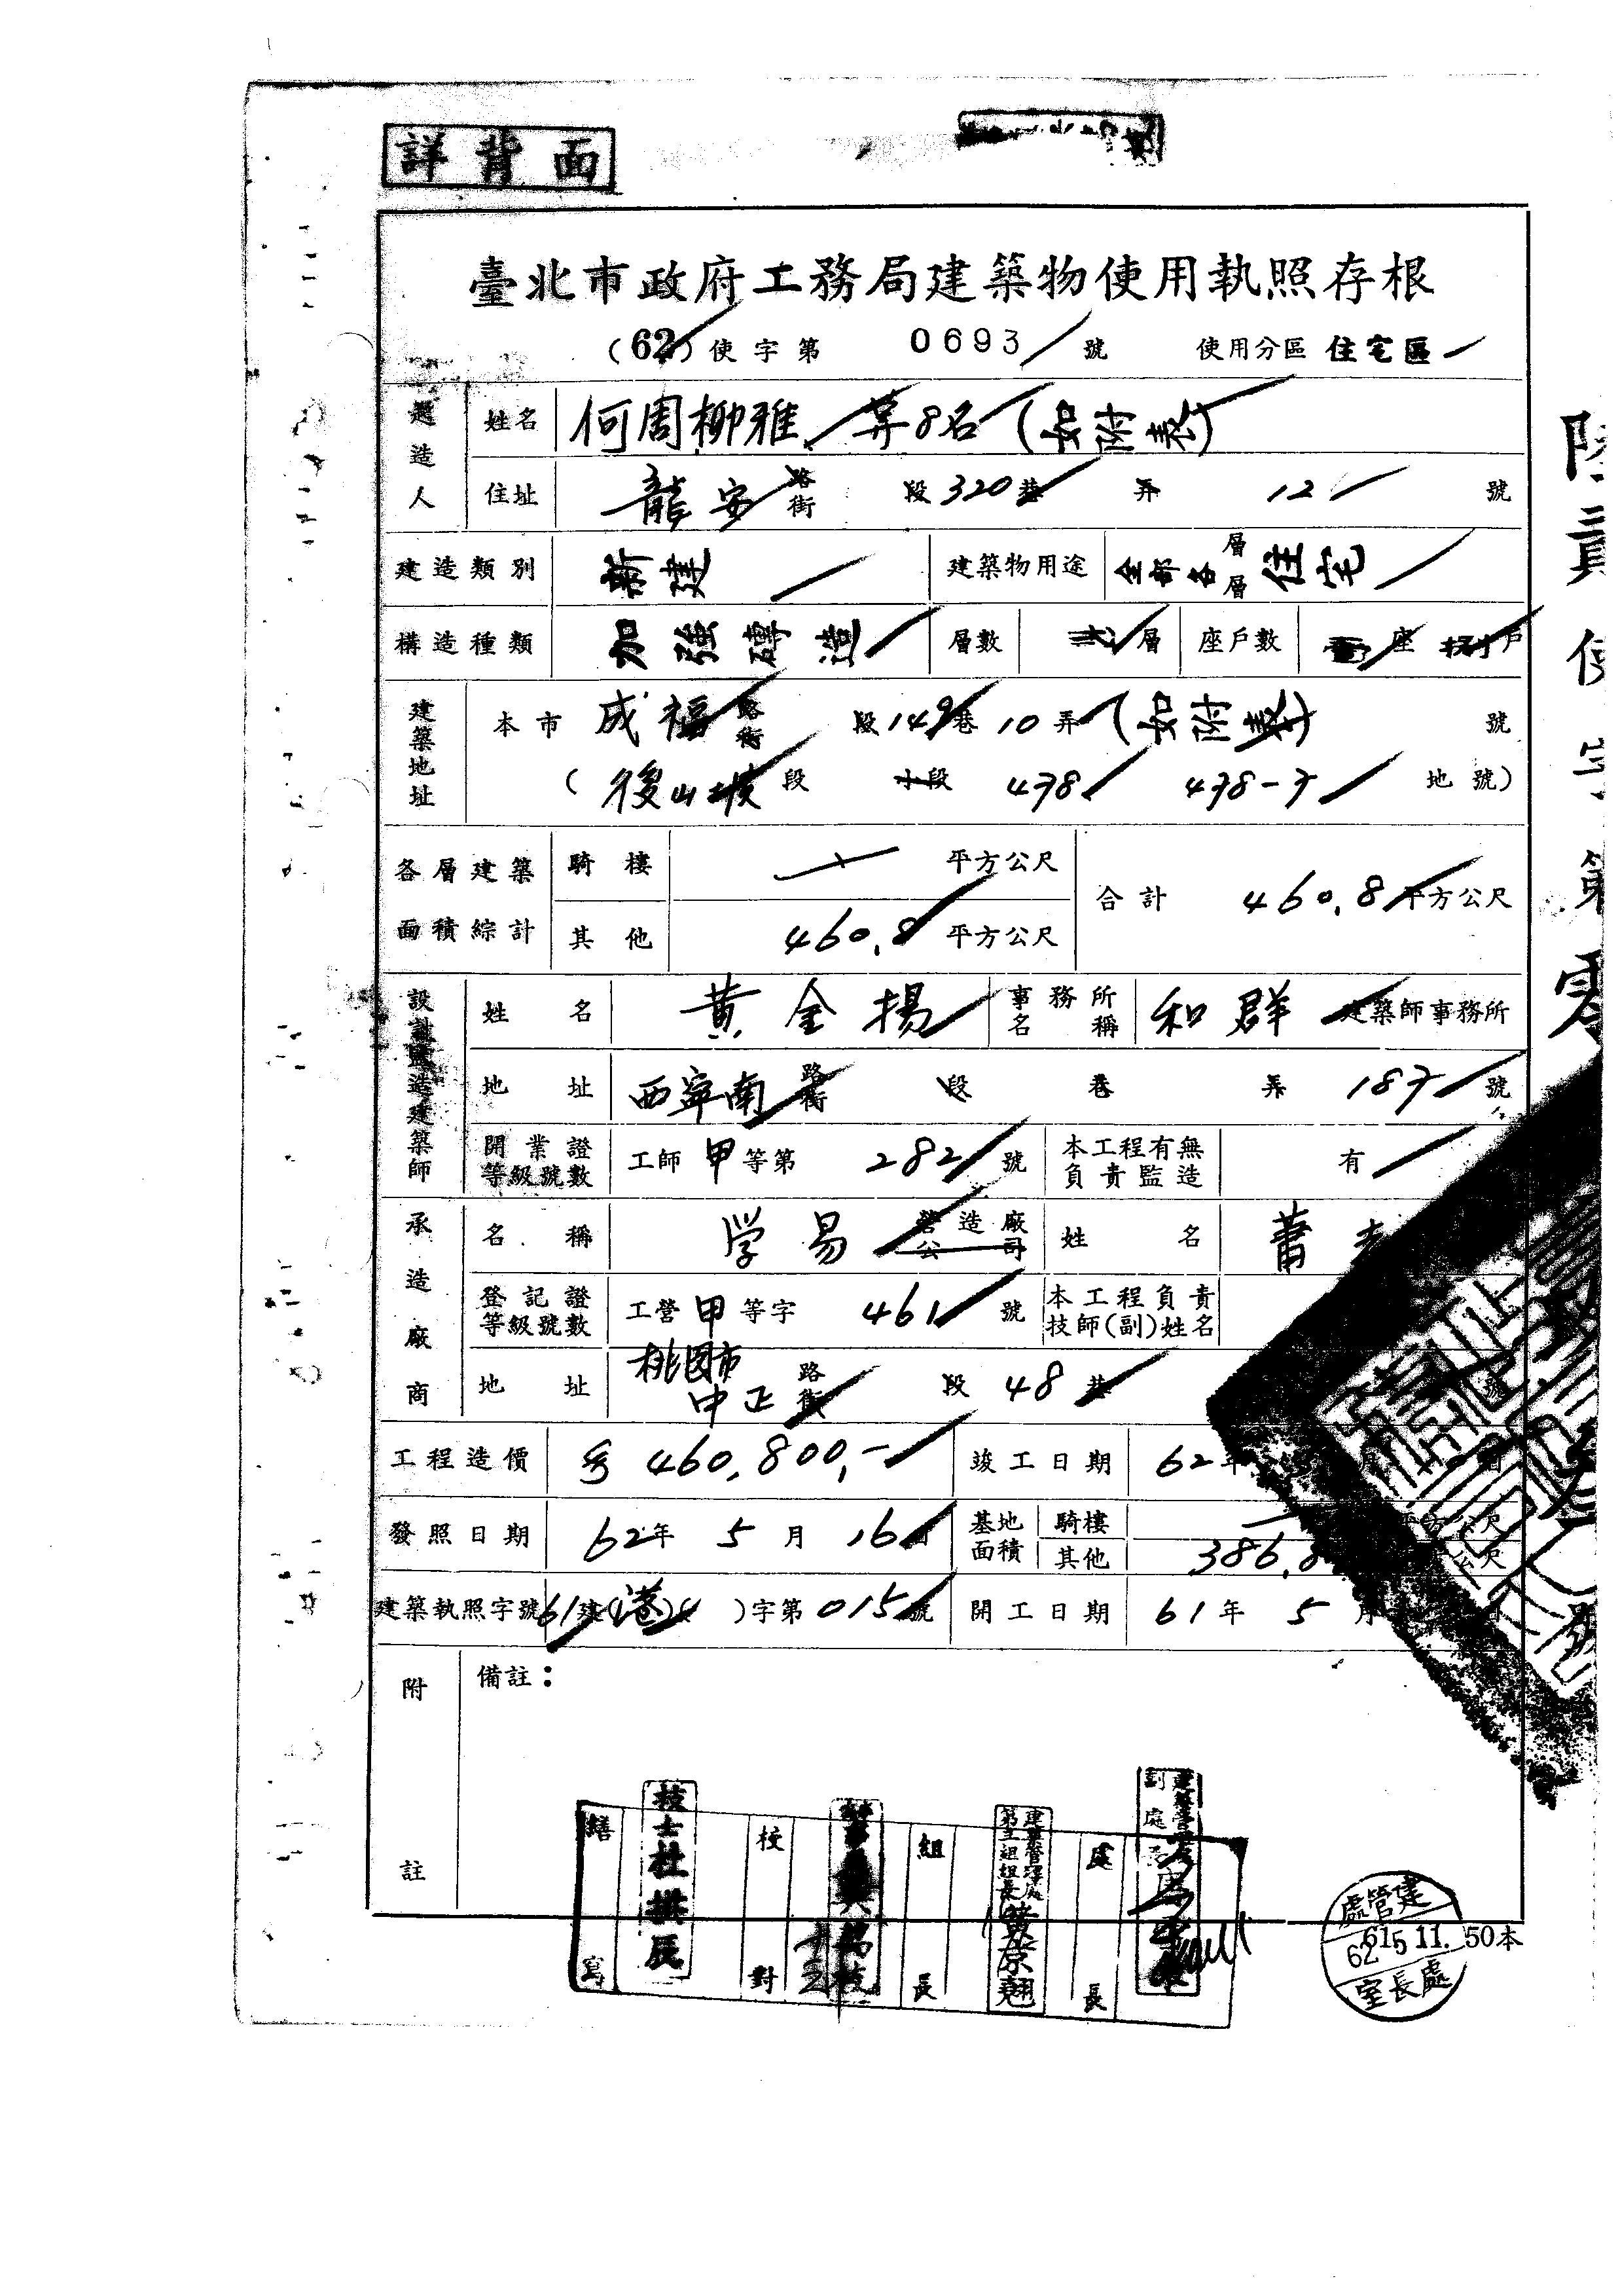 詳背面
臺北市政府工務局建築物使用執照存根
(62) 使字第 0693 號 使用分區 住宅區
起造人 姓名 何周柳雅 等8名(如附表)
住址 龍安 路街 段 320 巷 弄 12 號
建造類別 新建 建築物用途 全部各層層 住宅
構造種類 加強磚造 層數 貳 層 座戶數 座 戶
建築地址 本市 成福 路街 段 149 巷 10 弄 (如附表) 號
(後山坡 段 小段 438 438-7 地號)
各層建築面積綜計 騎樓 平方公尺 合計 460.8 平方公尺
其他 460.8 平方公尺
設計監造建築師 姓名 黃金揚 事務所名稱 和群 建築師事務所
地址 西寧南 路街 段 巷 弄 187 號
開業證等級號數 工師 甲 等第 282 號 本工程有無負責監造 有
承造廠商 名稱 学易 營造廠公司 姓名 蕭
登記證等級號數 工營 甲 等字 461 號 本工程負責技師(副)姓名
地址 桃園市中正 路街 段 48 巷 號
工程造價 460,800,- 竣工日期 62年
發照日期 62年 5 月 16 日 基地面積 騎樓 平方公尺
其他 386.8 公尺
建築執照字號 61建(港)( )字第 015 號 開工日期 61年 5 月
附註 備註:
繕寫 技士杜拱辰 校對 組長 建築管理處第三組組長 黃原翹 處長
處管建
62 5 11. 50本
室長處
陸貳使字第零